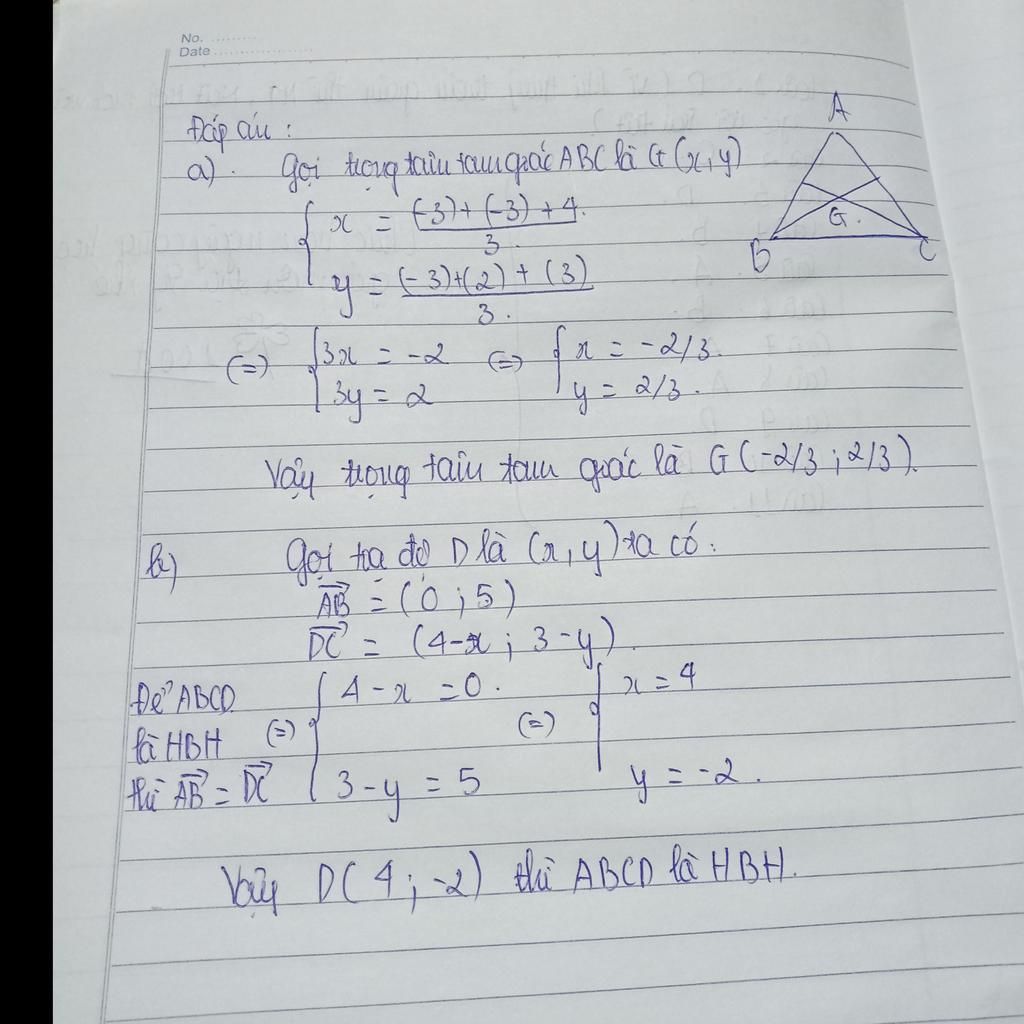 No. ..........
Date ..................
Đáp án :
A
a). Gọi trọng tâm tam giác ABC là G(x, y)
{ x = ((-3) + (-3) + 4) / 3.
{ y = ((-3)+(2) + (3)) / 3.
G.
B C
(=) { 3x = -2 (=) { x = -2/3.
{ 3y = 2 { y = 2/3.
Vậy trọng tâm tam giác là G(-2/3 ; 2/3).
b) Gọi tọa độ D là (x, y) ta có :
AB = (0 ; 5)
DC = (4-x ; 3-y).
Để ABCD { 4 - x = 0. { x = 4
là HBH (=) (=)
thì AB = DC { 3 - y = 5 y = -2.
Vậy D( 4 ; -2) thì ABCD là HBH.